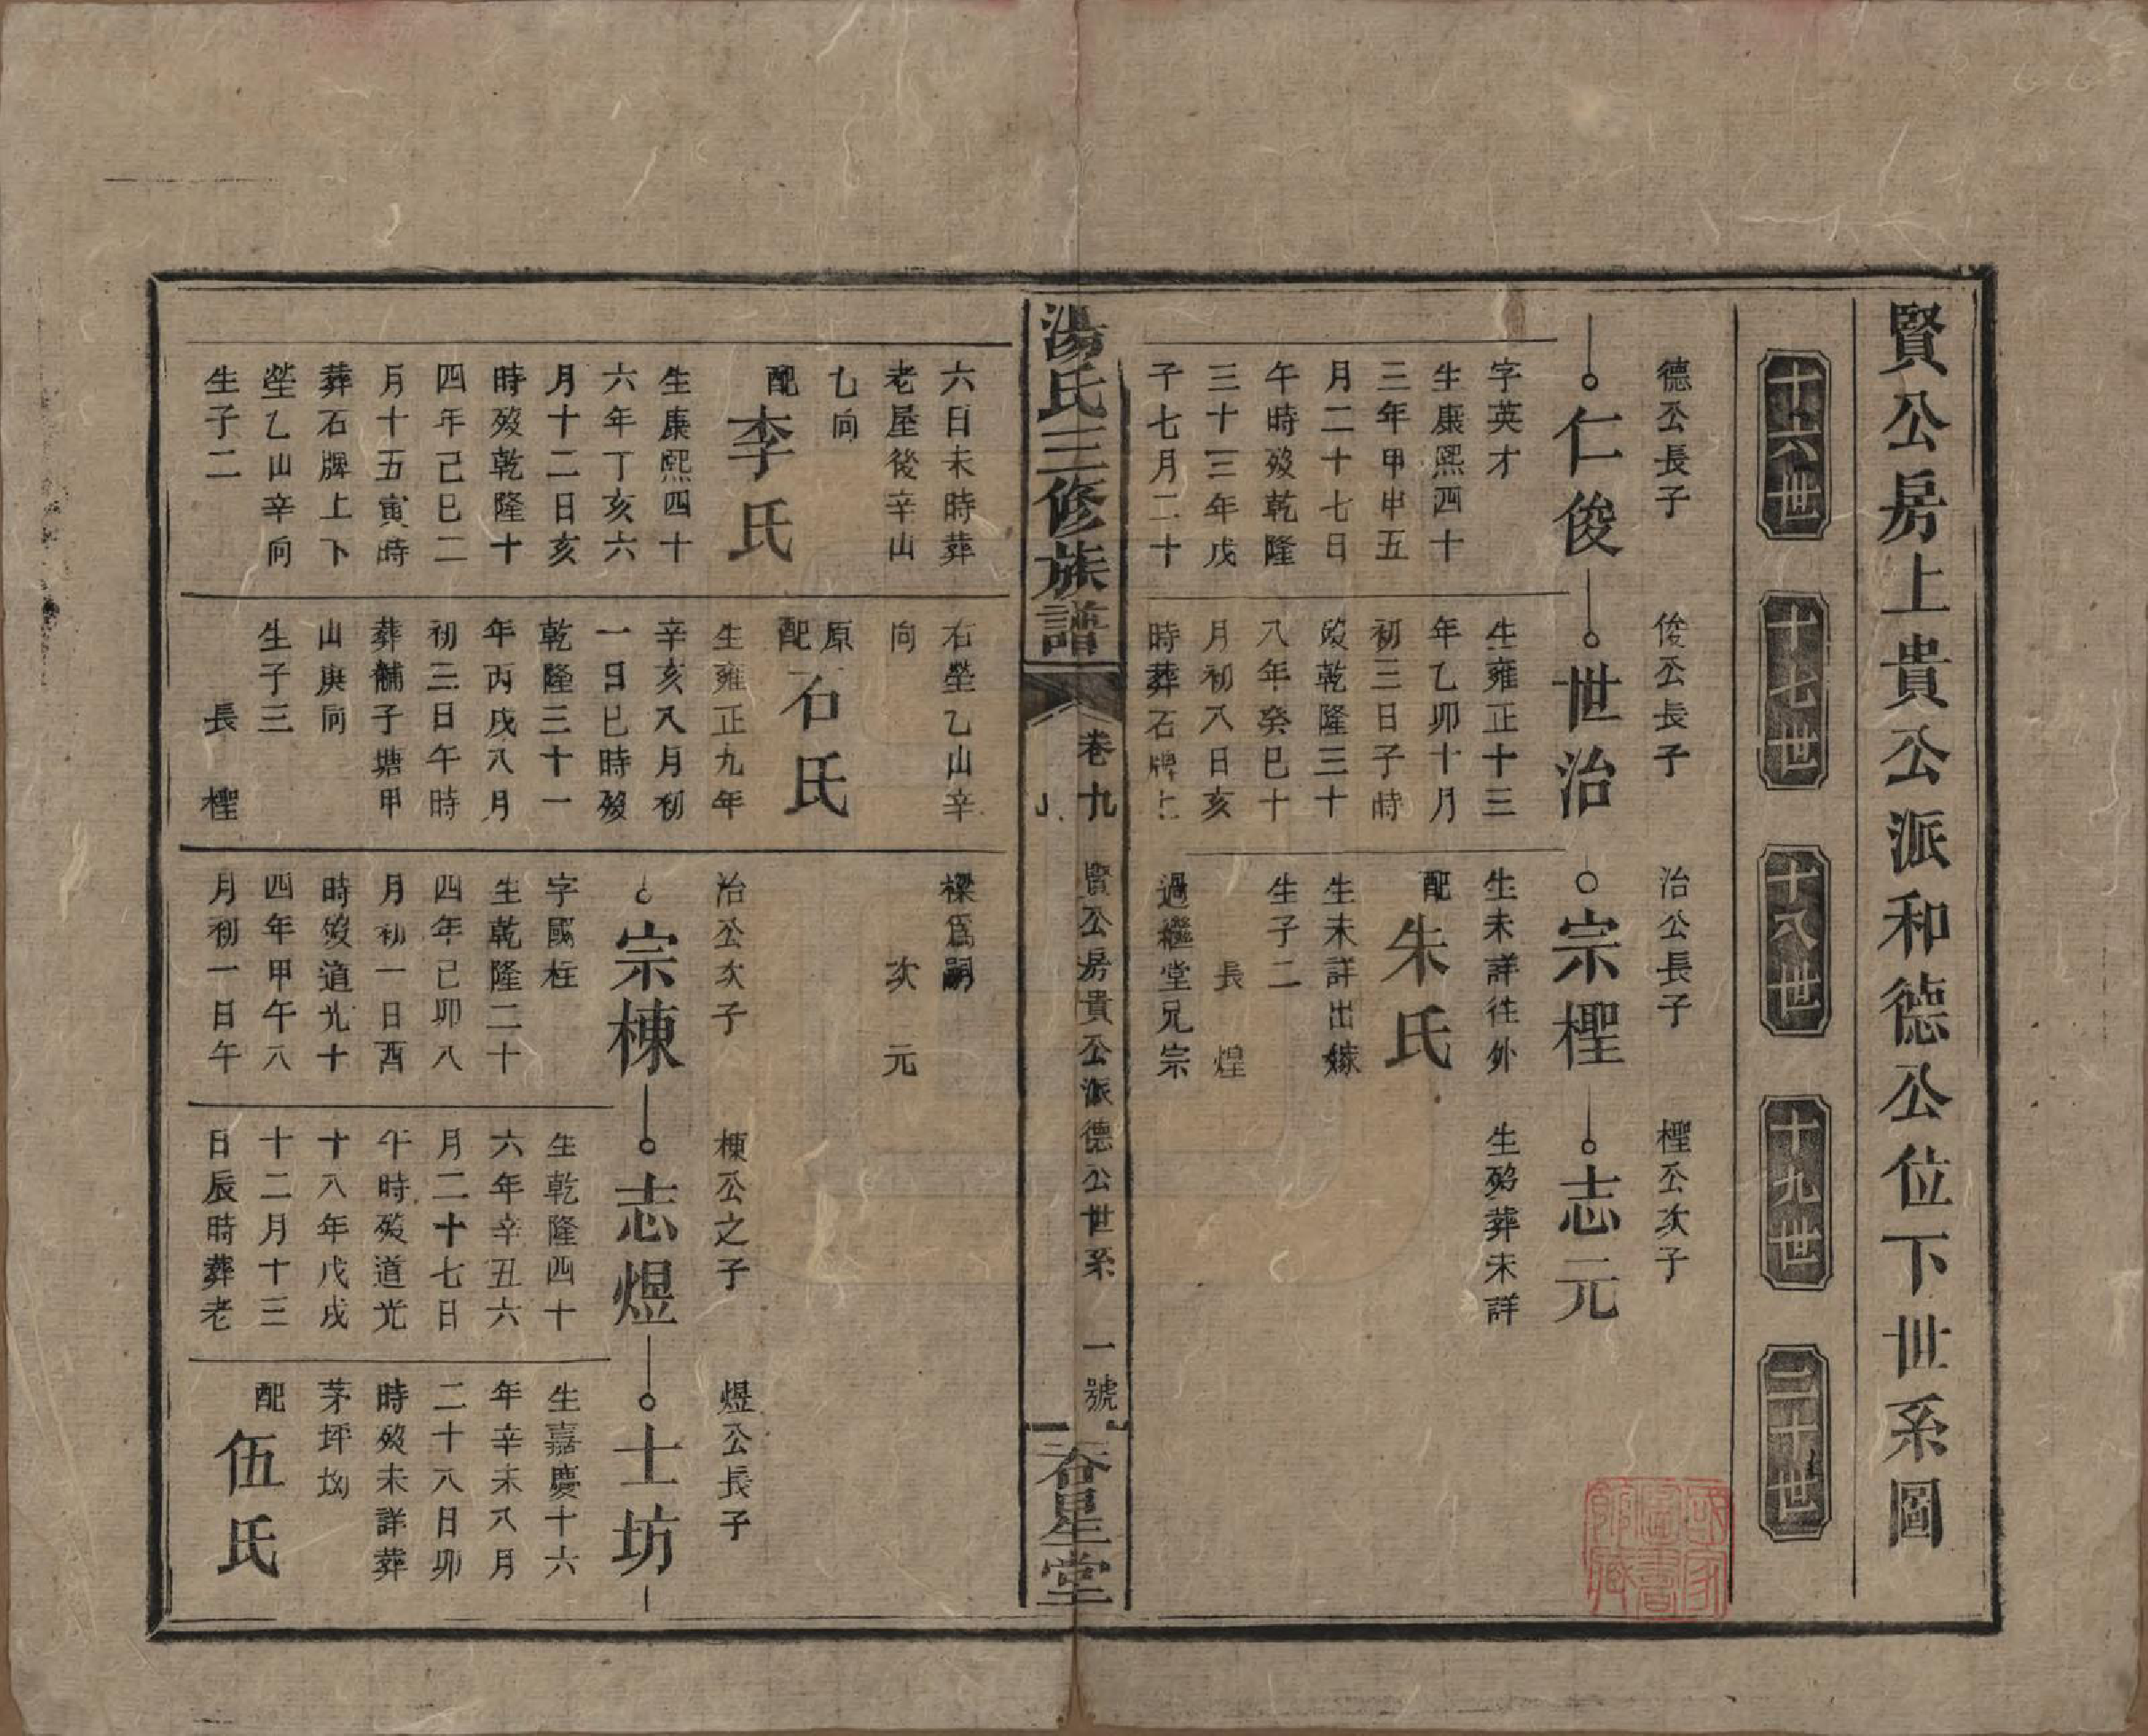 賢公房上貴公派和德公位下世系圖
十六世
十七世
十八世
十九世
二十世
德公長子
仁俊
字英才
生康熙四十
三年甲申五
月二十七日
午時歿乾隆
三十三年戊
子七月二十
六日未時葬
老屋後辛山
乙向
配李氏
生康熙四十
六年丁亥六
月十二日亥
時歿乾隆十
四年己巳二
月十五寅時
葬石牌上下
塋乙山辛向
生子二
俊公長子
世治
生雍正十三
年乙卯十月
初三日子時
歿乾隆三十
八年癸巳十
月初八日亥
時葬石牌上
右塋乙山辛
向
原配石氏
生雍正九年
辛亥八月初
一日巳時歿
乾隆三十一
年丙戌八月
初三日午時
葬 子塘甲
山庚向
生子三
長 檉
治公長子
宗檉
生未詳往外
配朱氏
生未詳出嫁
生子二
長 煌
過繼堂兄宗
樑為嗣
次 元
檉公次子
志元
生歿葬未詳
治公次子
宗棟
字國柱
生乾隆二十
四年己卯八
月初一日酉
時歿道光十
四年甲午八
月初一日午
棟公之子
志煜
生乾隆四十
六年辛丑六
月二十七日
午時歿道光
十八年戊戌
十二月十三
日辰時葬老
煜公長子
士坊
生嘉慶十六
年辛未八月
二十八日卯
時歿未詳葬
茅坪坳
配伍氏
湯氏三修族譜
卷九
賢公房貴公派德公世系
一號
春星堂
國家圖書館藏